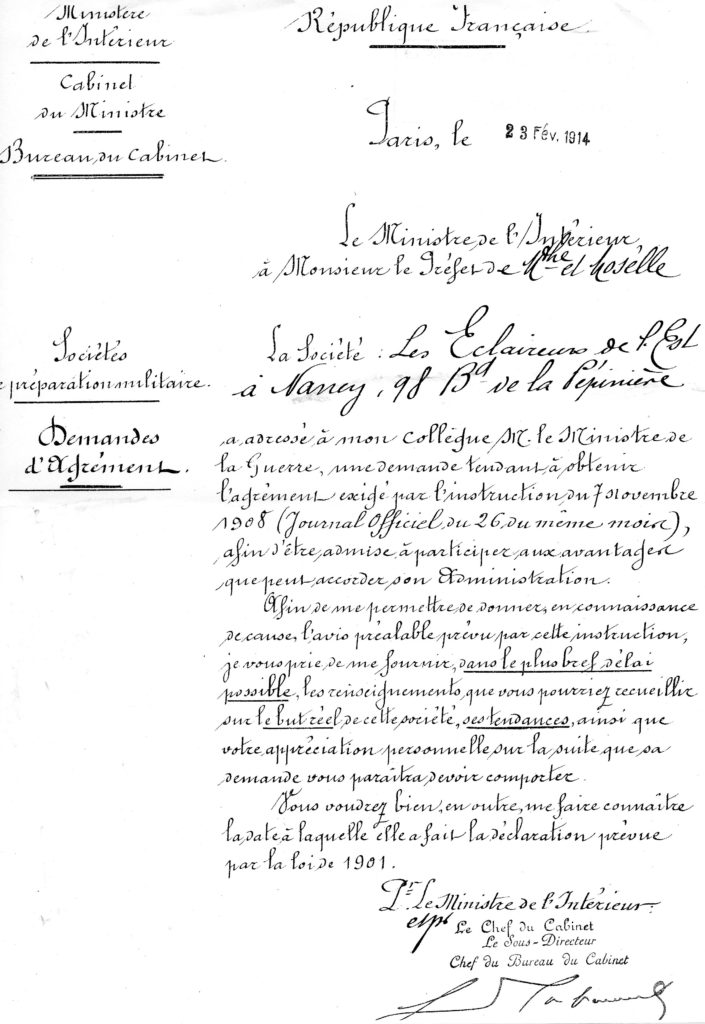 Ministère
de l'Intérieur
Cabinet
du Ministre
Bureau du Cabinet
République Française
Paris, le 23 Fév. 1914
Le Ministre de l'Intérieur
à Monsieur le Préfet de Mthe et Moselle
Sociétés
de préparation militaire.
Demandes
d'Agrément.
La Société : Les Eclaireurs de l'Est
à Nancy, 98 Bd de la Pépinière
a adressé à mon Collègue M. le Ministre de
la Guerre, une demande tendant à obtenir
l'agrément exigé par l'instruction du 7 Novembre
1908 (Journal Officiel du 26 du même mois),
afin d'être admise à participer aux avantages
que peut accorder son Administration.
Afin de me permettre de donner, en connaissance
de cause, l'avis préalable prévu par cette instruction,
je vous prie de me fournir, dans le plus bref délai
possible, les renseignements que vous pourriez recueillir
sur le but réel de cette société, ses tendances, ainsi que
votre appréciation personnelle sur la suite que sa
demande vous paraîtra devoir comporter.
Vous voudrez bien, en outre, me faire connaître
la date à laquelle elle a fait la déclaration prévue
par la loi de 1901.
Pr. Le Ministre de l'Intérieur.
Le Chef du Cabinet
Le Sous-Directeur
Chef du Bureau du Cabinet